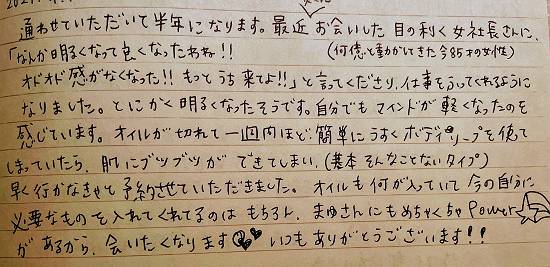 通わせていただいて半年になります。最近お会いした目の利く女社長さんに、
「なんか明るくなって良くなったわね!!
(何億と動かしてきた今85才の女性)
オドオド感がなくなった!! もっとうち来てよ!!」と言ってくださり、仕事をふってくれるように
なりました。とにかく明るくなったそうです。自分でもマインドが軽くなったのを
感じています。オイルが切れて一週間ほど簡単にうすくボディソープを使って
しまっていたら、肌にブツブツができてしまい、(基本そんなことないタイプ)
早く行かなきゃと予約させていただきました。オイルも何が入っていて今の自分に
必要なものを入れてくれてるのはもちろん、まゆさんにもめちゃくちゃPower
があるから、会いたくなります いつもありがとうございます!!